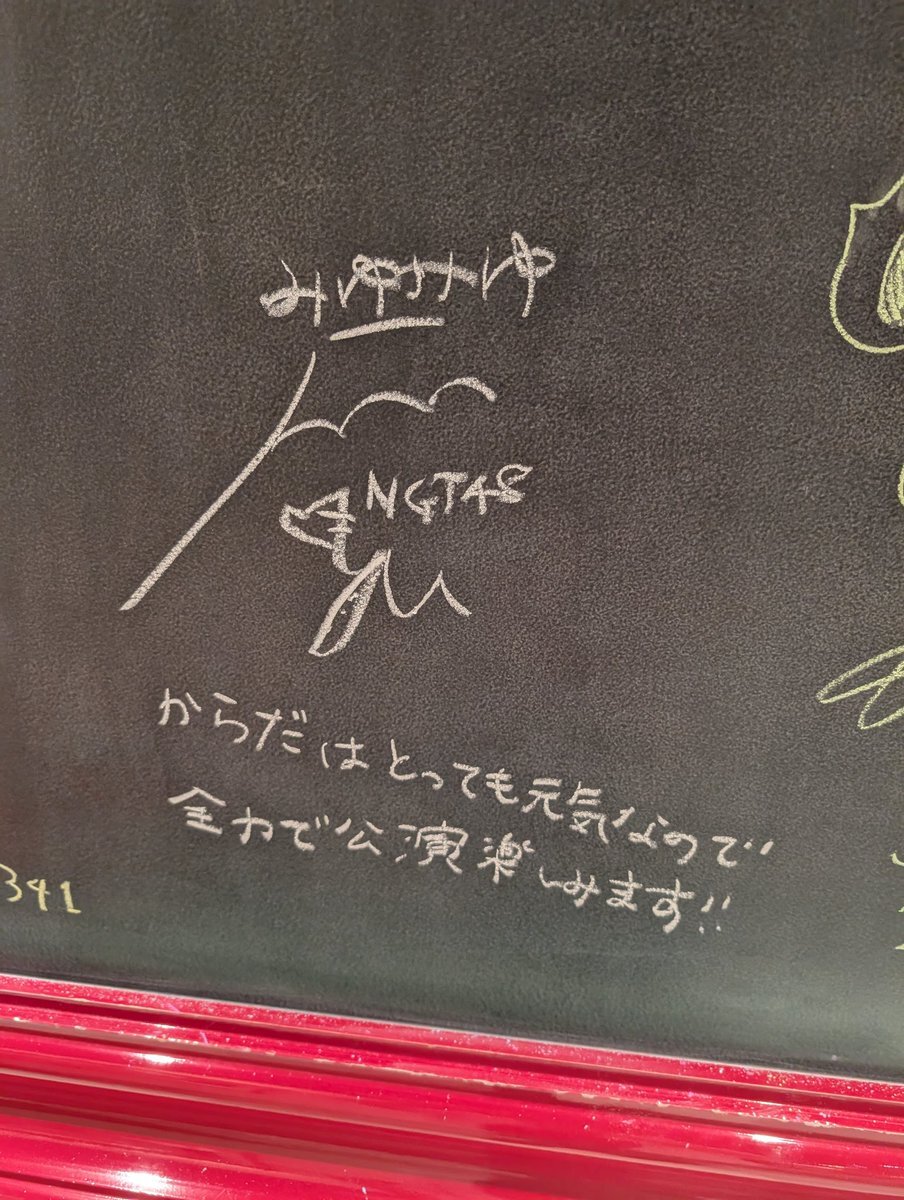 みゆみゆ
NGT48
からだはとっても元気なので
全力で公演楽しみます!!
341